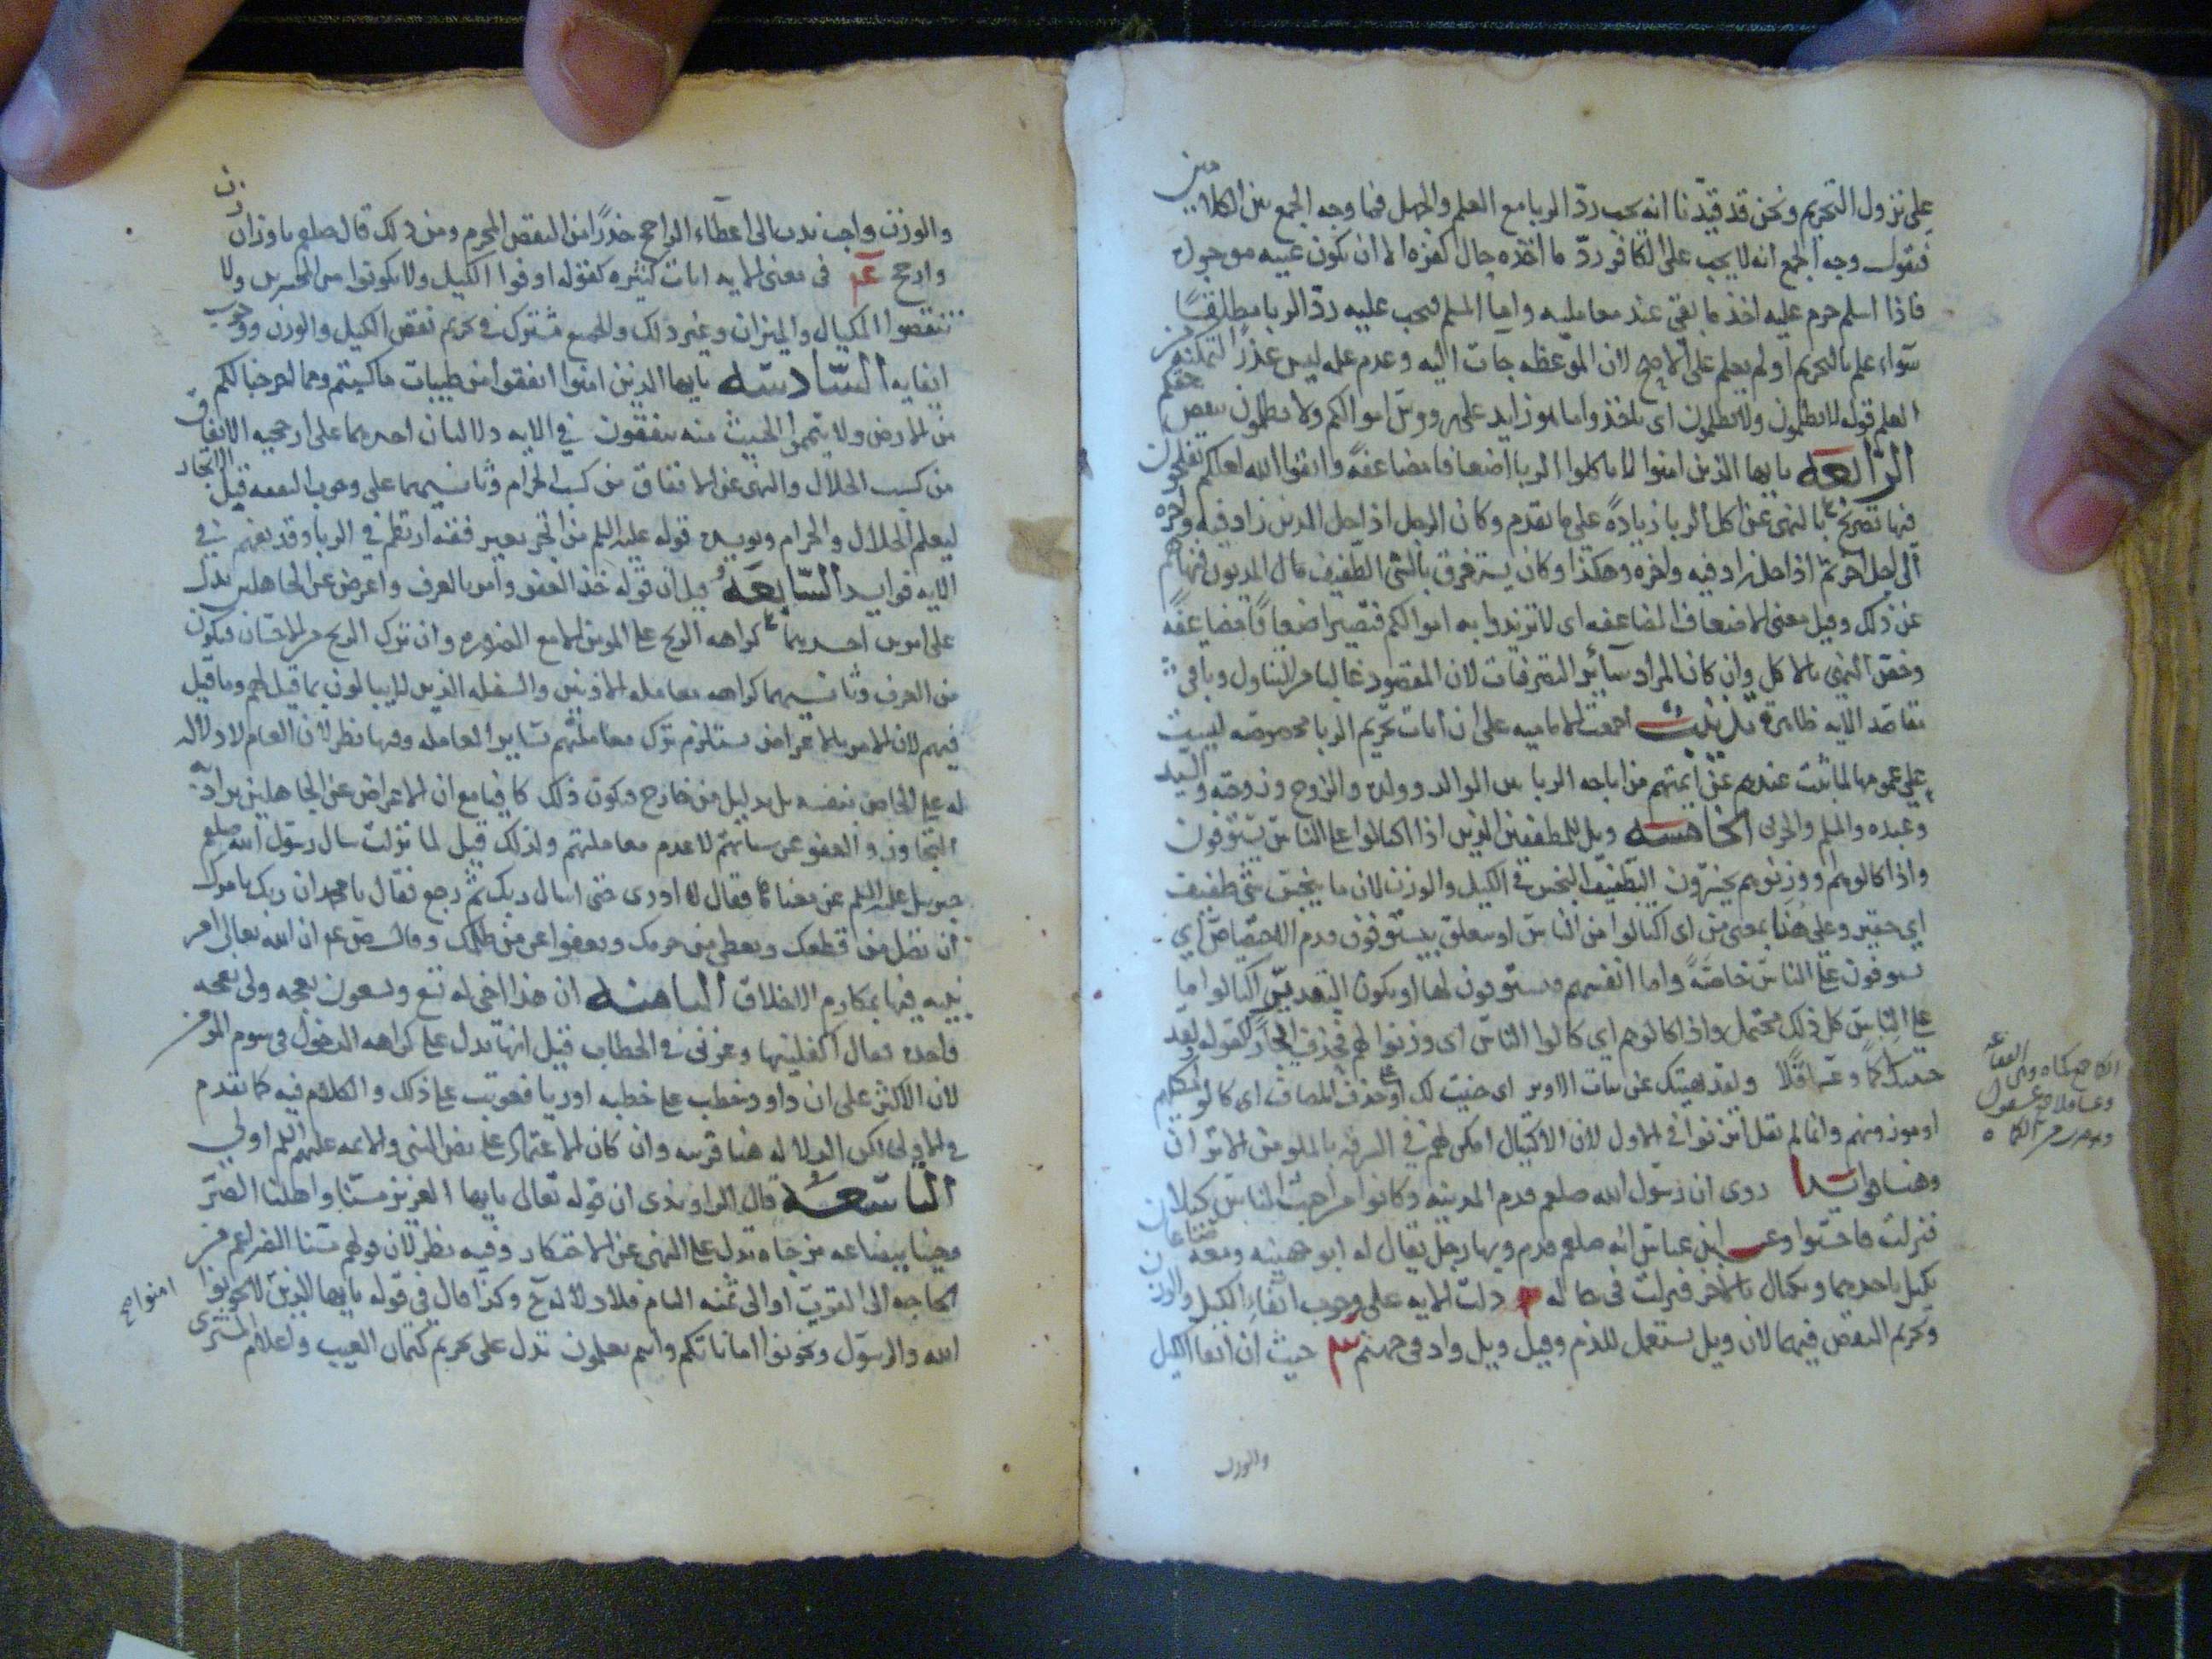 على نزول التحريم ونحن قد قيدنا انه يجب ردّ الربا مع العلم والجهل فما وجه الجمع بين الكلامين
فنقول وجه الجمع انه لا يجب على الكافر ردّ ما اخذه حال كفره الا ان يكون عينه موجودة
فاذا اسلم حرم عليه اخذ ما بقى عند معامليه واما المسلم فيجب عليه ردّ الربا مطلقًا
سواء علم بالتحريم او لم يعلم على الاصح لان الموعظه جآت اليه وعدم علمه ليس عذرًا لتمكنه من
العلم قوله لا تظلمون ولا تظلمون اى باخذ واما لمو زايد على رووس اموالكم ولا تظلمون بنقص حقكم
الرابعه يا يها الذين امنوا لا تاكلوا الربا اضعافا مضاعفةً واتقوا الله لعلكم تفلحون
فيها تصريح بالنهى عن اكل الربا زيادةً على ما تقدم وكان الرجل اذا حل الدين زاد فيه واخره
الى اجل اخر ثم اذا حل زاد فيه واخره وهكذا وكان يستغرق بالشى الطفيف مال المديون فنهاهم
عن ذلك وقيل معنى الاضعاف المضاعفه اى لا تزيدوا به اموالكم فتصير اضعافًا مضاعفةً
وخصّ النهى بالاكل وان كان المراد سآئر التصرفات لان المقصود غالبا هو التناول وباقى
مقاصد الايه ظاهرة تذنيب اجمعت الاماميه على ان ايات تحريم الربا مخصوصه ليست
على عمومها لما ثبت عندهم عن ائمتهم من اباحه الربا بين الوالد وولده والزوج وزوجته والسيد
وعبده والمسلم والحربى الخامسه ويل للمطففين الذين اذا اكتالوا على الناس يستوفون
واذا كالوهم او وزنوهم يخسرون التطفيف البخس فى الكيل والوزن لان ما يبخس شى طفيف
اى حقير وعلى هنا بمعنى من اى اكتالوا من الناس او متعلق بيستوفون قدم للاختصاص اى
يستوفون على الناس خاصةً واما انفسهم فيستوفون لها او يكون التقدير اكتالوا ما
على الناس كل ذلك محتمل واذا كالوهم اى كالوا الناس اى وزنوا لهم فحذف الجار كقوله ولقد
جنيتك اكمؤا وعساقلا ولقد نهيتك عن بنات الاوبر اى جنيت لك او حذف المضاف اى كالوا مكيلهم
او موزونهم وانما لم يقل اتزنوا فى الاول لان الاكتيال امكن لهم فى السرقه
وهنا فوايد ا روى ان رسول الله صلعم قدم المدينه وكانوا من اخبث الناس كيلا
فنزلت فاحسنوا وعن ابن عباس انه صلعم قدم وبها رجل يقال له ابو جهينه ومعه صاعان
يكيل باحدهما ويكتال بالاخر فنزلت فى حاله دلت الايه على وجوب ايفاء الكيل والوزن
وتحريم النقص فيهما لان ويل يستعمل للذم وقيل ويل واد فى جهنم حيث ان ايفا الكيل
والوزن
والوزن واجب ندب الى اعطاء الراجح حذرًا من النقص المحرم ومن ذلك قال صلعم يا وزان زن
وارجح فى معنى الايه ايات كثيره كقوله اوفوا الكيل ولا تكونوا من المخسرين ولا
تنقصوا المكيال والميزان وغير ذلك والجميع مشترك فى تحريم نقص الكيل والوزن ووجوب
ايفايه السادسه يا يها الذين امنوا انفقوا من طيبات ما كسبتم ومما اخرجنا لكم
من الارض ولا تيمموا الخبيث منه تنفقون فى الايه دلالتان احديهما على ارجحيه الانفاق
من كسب الحلال والنهى عن الانفاق من كسب الحرام وثانيهما على وجوب التفقه قبل الاتجار
ليعلم الحلال والحرام ويويده قوله عليه السلم من اتجر بغير فقه ارتطم فى الربا وقد يفهم فى
الايه فوايد السابعه قيل ان قوله خذ العفو وامر بالعرف واعرض عن الجاهلين يدل
على امرين احديهما كراهه الربح على المومن الا مع الضروره وان ترك الربح من الاحسان فيكون
من العرف وثانيهما كراهه معامله الادنين والسفله الذين لا يبالون بما قيل لهم وما قيل
فيهم لان الامر بالاعراض يستلزم ترك معاملتهم بساير المعامله وفيها نظر لان العام لا دلاله
له على الخاص بنفسه بل بدليل من خارج فيكون ذلك كافيا مع ان الاعراض عن الجاهلين يراد به
التجاوز والعفو عن سياتهم لا عدم معاملتهم ولذلك قيل لما نزلت سال رسول الله صلعم
جبريل عليه السلم عن معناها فقال لا ادرى حتى اسال ربك ثم رجع فقال يا محمد ان ربك يامرك
ان تصل من قطعك وتعطى من حرمك وتعفوا عن من ظلمك وقال ان الله تعالى امر
نبيه فيها بمكارم الاخلاق الثامنه ان هذا اخى له تسع وتسعون نعجه ولى نعجه
واحده فقال اكفلنيها وعزنى فى الخطاب قيل انها تدل على كراهه الدخول فى سوم المومن
لان الاكثر على ان داود خطب على خطبه اوريا فعوتب على ذلك والكلام فيه كما تقدم
فى الاولى لكن الدلاله هنا قريبه وان كان الاعتماد على نص النبى والايمه عليهم السلم اولى
التاسعه قال الراوندى ان قوله تعالى يا يها العزيز مسنا واهلنا الضر
وجينا ببضاعه مزجاه تدل على النهى عن الاحتكار وفيه نظر لان قولهم مسنا الضر اعم من
الحاجه الى القوت او الى ثمنه العام فلا دلاله وكذا قال فى قوله يا يها الذين لا تخونوا
امنوا صح
الله والرسول وتخونوا اماناتكم وانتم تعلمون تدل على تحريم كتمان العيب واعلام المشترى